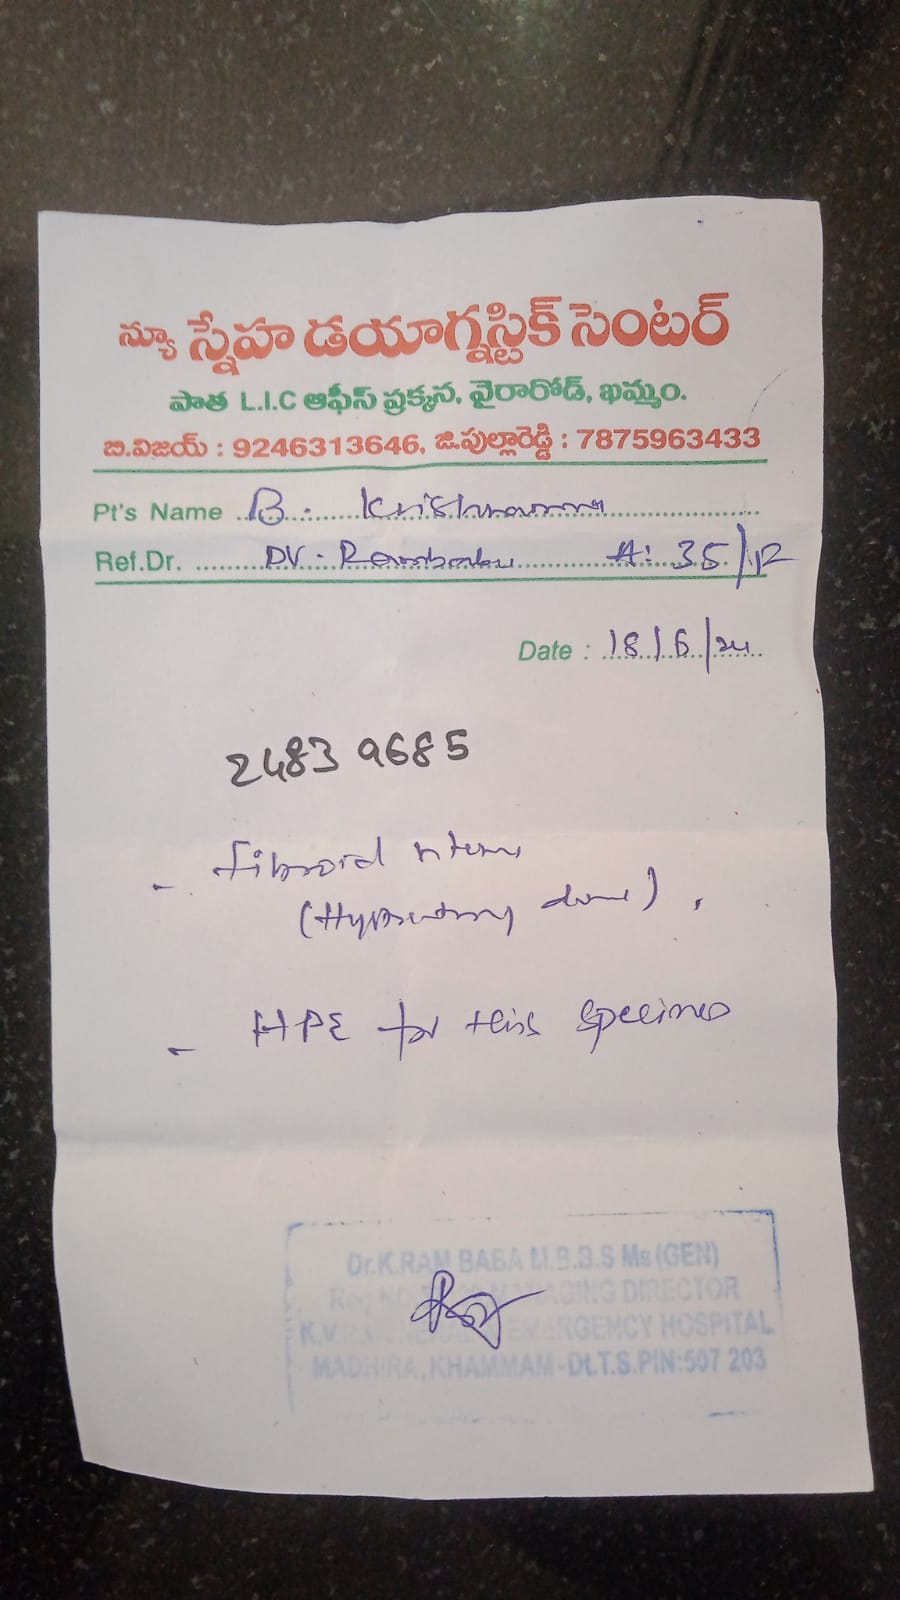 న్యూ స్నేహ డయాగ్నస్టిక్ సెంటర్
పాత L.I.C ఆఫీస్ ప్రక్కన, వైరారోడ్, ఖమ్మం.
బి.విజయ్ : 9246313646, జి.పుల్లారెడ్డి : 7875963433
Pt's Name B. Krishnamma
Ref.Dr. Dr. Rambabu A: 35/
Date : 18/6/24
2483 9685
- Fibroid uterus
(Hysterectomy done).
- HPE for this specimen
Dr.K.RAM BABA M.B.B.S Ms (GEN)
MANAGING DIRECTOR
EMERGENCY HOSPITAL
MADHIRA, KHAMMAM-Dt.T.S.PIN:507 203